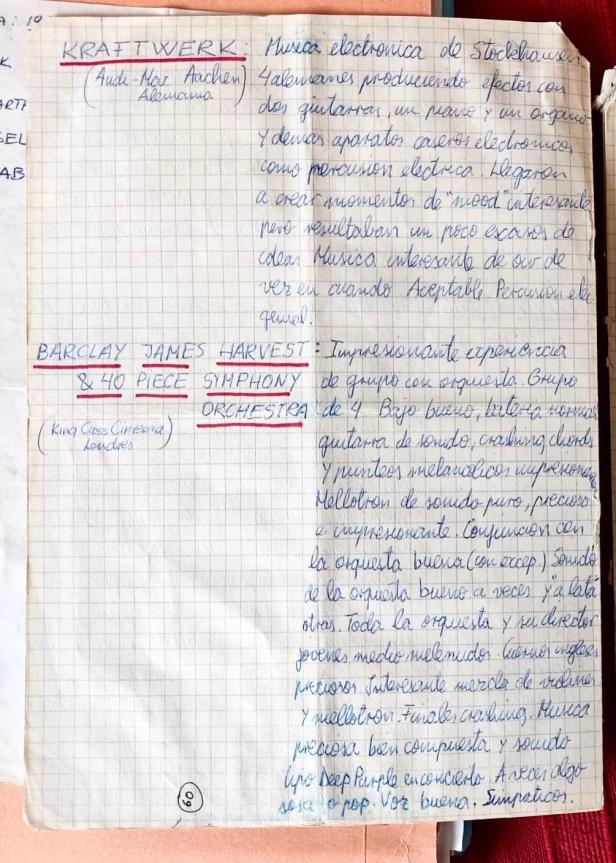 A: 10
K
ARTH
SEL
AB
KRAFTWERK: Musica electronica de Stockhausen
(Audi-Max Aachen
Alemania)
4 alemanes produciendo efectos con
dos guitarras, un piano y un organo
y demas aparatos caseros electronicos
como percusion electrica. Llegaron
a crear momentos de "mood" interesante
pero resultaban un poco escasos de
ideas. Musica interesante de oir de
vez en cuando. Aceptable. Percusion elec.
genial.
BARCLAY JAMES HARVEST: Impresionante experiencia
& 40 PIECE SYMPHONY de grupo con orquesta. Grupo
ORCHESTRA de 4. Bajo bueno, bateria normal
(King Cross Cinema
Londres)
guitarra de sonido, crashing chords
y punteos melancolicos impresionante
Mellotron de sonido puro, precioso
e impresionante. Conjuncion con
la orquesta buena (con excep.) Sonido
de la orquesta bueno a veces y "a lata"
otras. Toda la orquesta y su director
jovenes medio melenudos. Cuernos ingleses
preciosos. Interesante mezcla de violines
y mellotron. Finales crashing. Musica
preciosa bien compuesta y sonido
tipo Deep Purple en concierto. A veces algo
sosa o pop. Voz buena. Simpaticos.
60